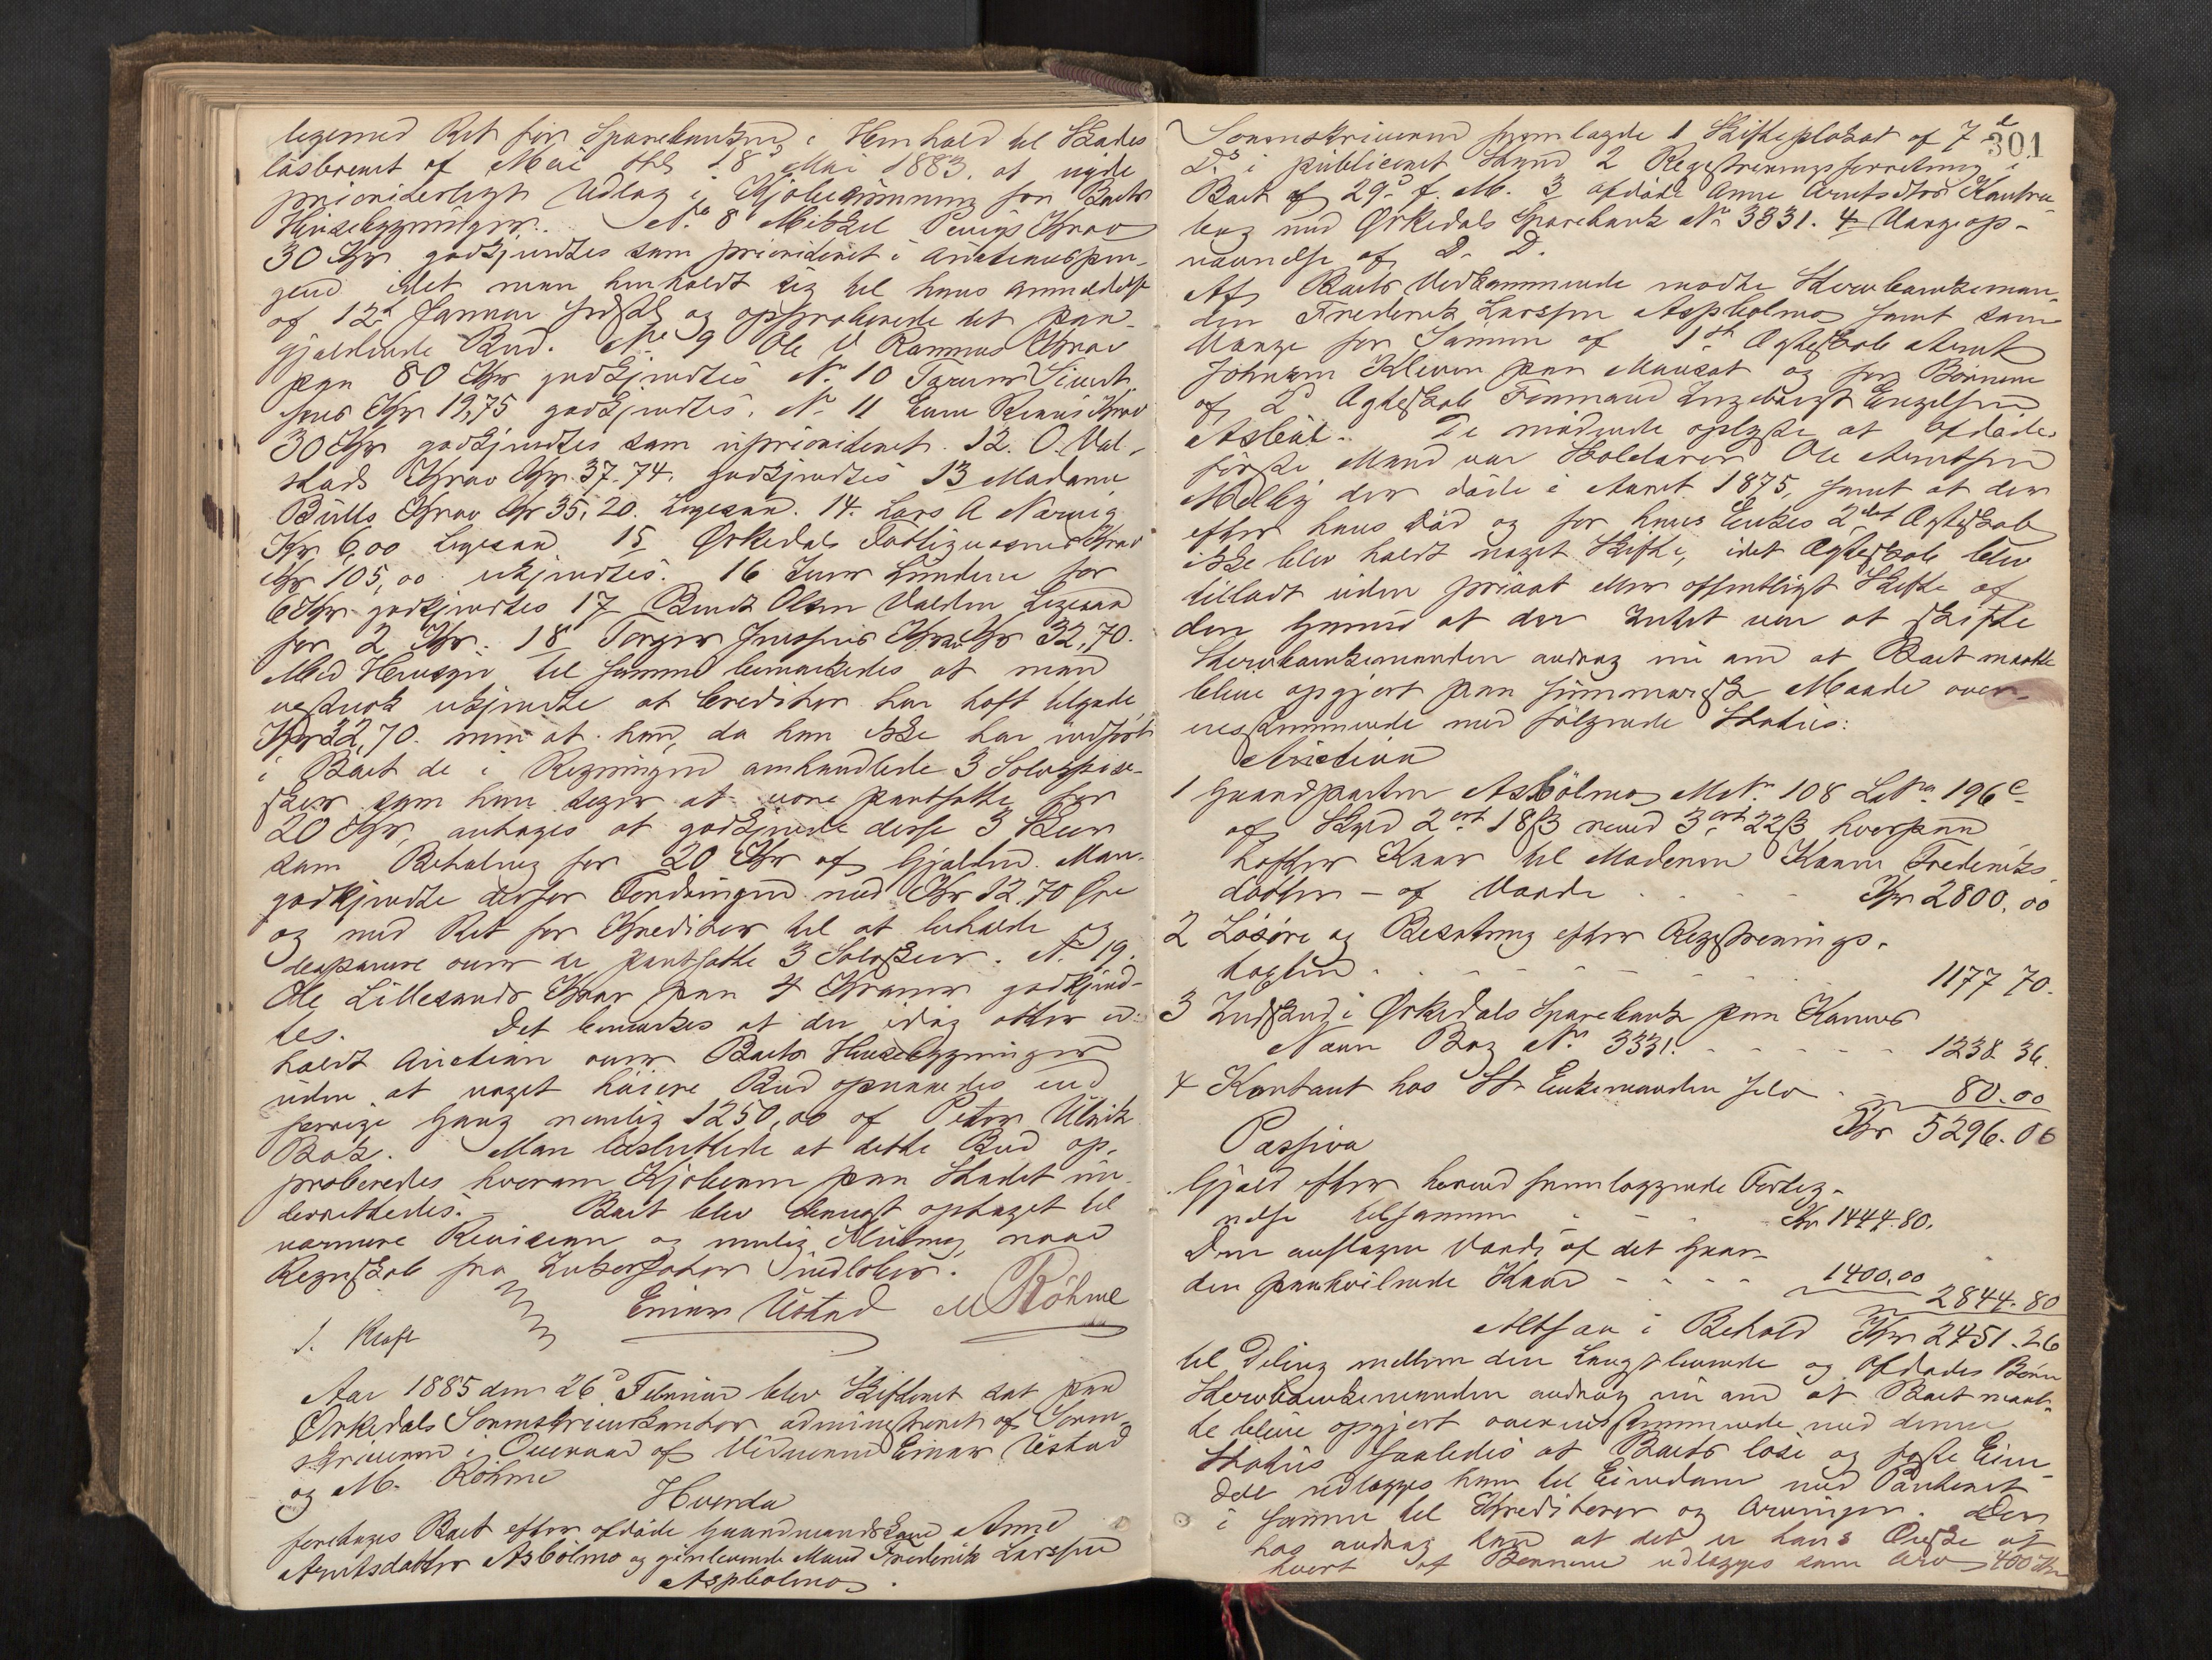 ligemed Ret for Sparebanken i Henhold til Skades
løsbrevet af Mai 18 Mai 1883. at nyde
prioriteretligt Udlæg i Kjøbesummen for Boets
Husebygninger. No. 8 Mikkel Krav
30 Kr godkjendtes som prioriteret i Auctionspen-
gene idet man henholdt sig til hans Anmeldelse
af 12te Januar og approberede det paa-
gjældende Bud. No 9 Ole Rammus Krav
paa 80 Kr godkjendtes No. 10 Sivert
sens Kr 19,75 godkjendtes. No 11 Krav
30 Kr godkjendtes som uprioriteret. 12. O. Val-
stads Krav Kr. 37.74. godkjendtes 13 Madame
Bulls Krav Kr 35,20. Ligesaa. 14. Lars A Narvig
Kr 6,00 Ligesaa 15 Ørkedals Fattigvæsens Krav
Kr 105,00 ukjendtes. 16 for
6 Kr godkjendtes 17 Bendt Olsen Valden Ligesaa
for 2 Kr. 18 Torger Krav Kr 32,70.
Med Hensyn til samme bemærkedes at man
vistnok ukjendte at Creditor har haft tilgode
Kr 32,70. men at han, da han ikke har indført
i Boet de i Regningen omhandlede 3 Sølvspise-
skeer som han siger at være pantsatte for
20 Kr, antages at godkjende disse 3 Skeer
som Betaling for 20 Kr af Gjælden. Man
godkjendte derfor Fordringen med Kr 12.70 Øre
og med Ret for Kreditor til at beholde og
disponere over de pantsatte 3 Sølvskeer. No 19.
Ole Lillesands Krav paa 4 Kroner godkjend-
tes. Det bemærkes at der idag atter er
holdt Auction over Boets Husebygninger
uden at noget høiere Bud opnaaedes end
forrige Gang nemlig 1250,00 af Peter Ulrik
Bak. Man besluttede at dette Bud ap-
proberedes hvorom Kjøberen paa Stedet un-
derrettedes. Boet blev dernest optaget til
nærmere Revision og mulig Slutning naar
Regnskab fra Inkassator indløber.
Einar Ustad M Röhme
Aar 1885 den 26d Februar blev Skifteret sat paa
Ørkedals Sorenskriverkontor administreret af Soren-
skriveren i Overvær af Vidnerne Einar Ustad
og M. Röhme
Hvorda
foretages Boet efter afdøde Gaardmandskone Anne
Arntsdatter Asbølmo og gjenlevende Mand Frederik Larssen
Aspbolmo.
301
Sorenskriveren fremlagde 1 Skifteplakat af 7d
Ds. i publiceret Stand 2 Registreringsforretning i
Boet af 29d f. M. 3 afdøde Anne Arntsdtrs Kontra-
bog med Ørkedals Sparebank No 3331. 4 Værgeop-
nævnelse af D. D.
Af Boets Vedkommende mødte Stervboenkeman-
den Frederik Larssen Aspbolmo samt som
Værge for Sønnen af 1ste Ægteskab Arnt
Johnsen Kleven paa Mousat og for Børnene
af 2d Ægteskab Formand Ingebrigt Engelsen
Asbøl. De mødende oplyste at Afdødes
første Mand var Skolelærer Ole Arntsen
Melby der døde i Aaret 1875, samt at der
efter hans Død og for hans Enkes 2det Ægteskab
ikke blev holdt noget Skifte, idet Ægteskab blev
tilladt uden privat eller offentligt Skifte af
den Grund at der Intet var at skifte
Stervboenkemanden androg nu om at Boet maatte
blive opgjort paa summarisk Maade over-
ensstemmende med følgende Status:
Activa
1 Gaardparten Asbölmo Mt No. 108 LNo 196c
af Skyld 2 ort 18 ß med 3 ort 22 ß hvorpaa
hefter Kaar til Moderen Karen Frederiks
datter - af Værdi Kr 2800,00
2 Løsøre og Besætning efter Registrerings-
taxten 1177 70.
3 Indskud i Ørkedals Sparebank paa Konens
Navn Bog No 3331. 1238.36.
4 Kontant hos Stv Enkemanden selv 80.00
Kr 5296.06
Passiva
Gjæld efter herved fremlæggende Forteg-
nelse tilsammen Kr 1444.80.
Den anslagne Værdi af det Gaar-
den paahvilende Kaar 1400,00
2844.80
Altsaa i Behold Kr 2451.26
til Deling mellem den Længstlevende og Afdødes Børn
Stervboenkemanden androg nu om at Boet maat-
te blive opgjort overensstemmende med denne
Status saaledes at Boets løse og faste Eien-
dele udlægges ham til Eiendom med Panteret
i samme til Kreditorer og Arvinger. Der-
hos androg han at det er hans Ønske at
hvert af Børnene udlægges som Arv 400 Kr